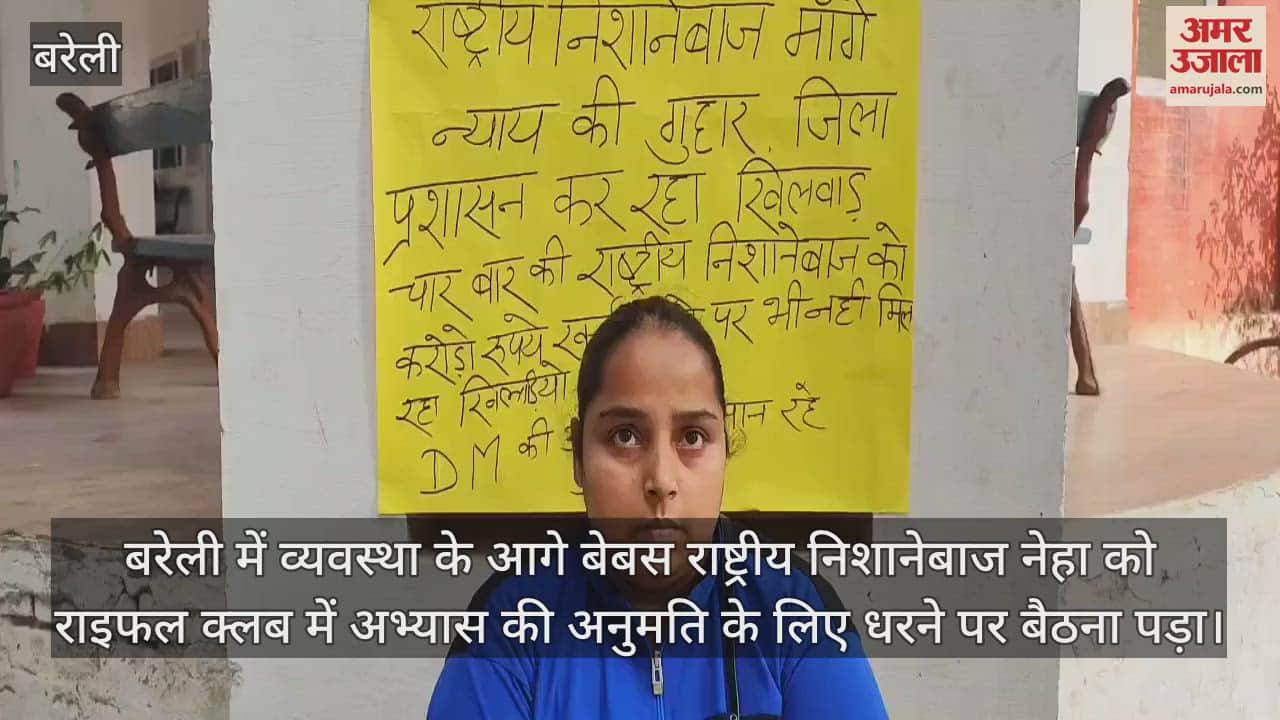 बरेली
अमर
उजाला
amarujala.com
राष्ट्रीय निशानेबाज माँगे
न्याय की गुहार, जिला
प्रशासन कर रहा खिलवाड़
चार बार की राष्ट्रीय निशानेबाज को
करोड़ो रुपये पर भी नही मिल
रहा खिलाड़ियो रहे
DM की
बरेली में व्यवस्था के आगे बेबस राष्ट्रीय निशानेबाज नेहा को
राइफल क्लब में अभ्यास की अनुमति के लिए धरने पर बैठना पड़ा।